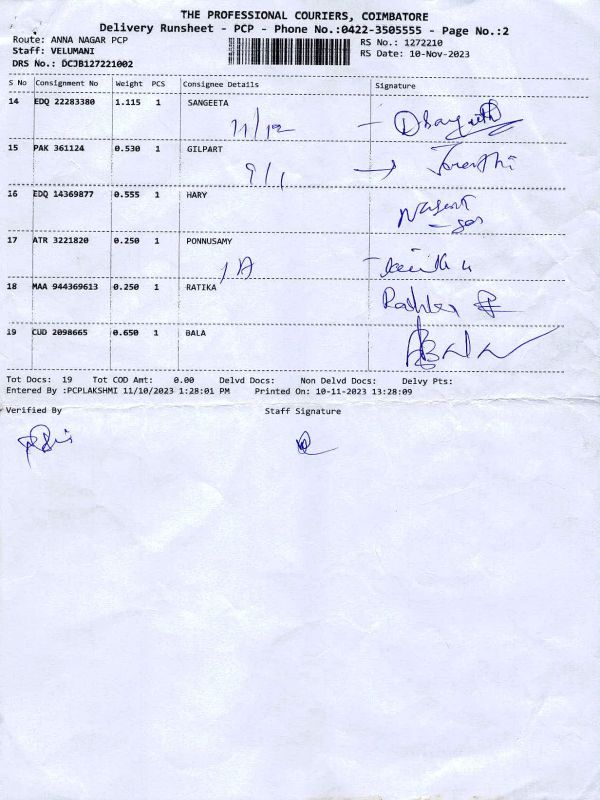 THE PROFESSIONAL COURIERS, COIMBATORE
Delivery Runsheet - PCP - Phone No.:0422-3505555 - Page No.:2
Route: ANNA NAGAR PCP
RS No.: 1272210
Staff: VELUMANI
RS Date: 10-Nov-2023
DRS No.: DCJB127221002
S No Consignment No Weight PCS Consignee Details Signature
14 EDQ 22283380 1.115 1 SANGEETA
11/12
15 PAK 361124 0.530 1 GILPART
9/1
16 EDQ 14369877 0.555 1 HARY
17 ATR 3221820 0.250 1 PONNUSAMY
18 MAA 944369613 0.250 1 RATIKA
19 CUD 2098665 0.650 1 BALA
Tot Docs: 19 Tot COD Amt: 0.00 Delvd Docs: Non Delvd Docs: Delvy Pts:
Entered By :PCPLAKSHMI 11/10/2023 1:28:01 PM Printed On: 10-11-2023 13:28:09
Verified By Staff Signature